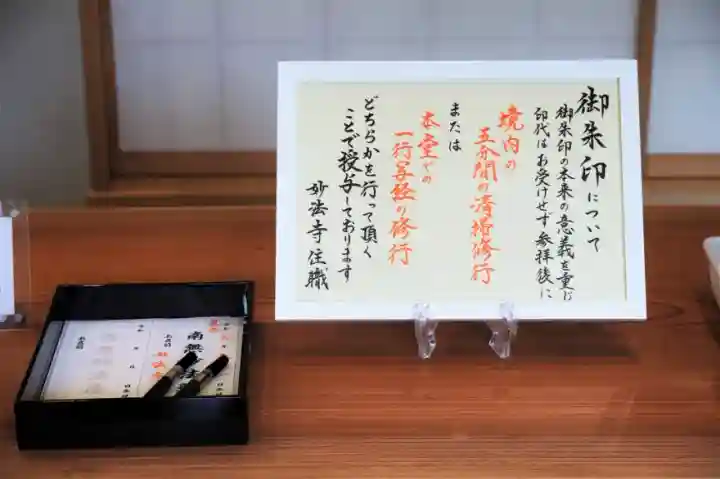 御朱印について
御朱印の本来の意義を重じ
印代はお受けせず参拝後に
境内の
五分間の清掃修行
または
本堂での
一行写経の修行
どちらかを行って頂く
ことで授与しております
妙法寺住職
南無